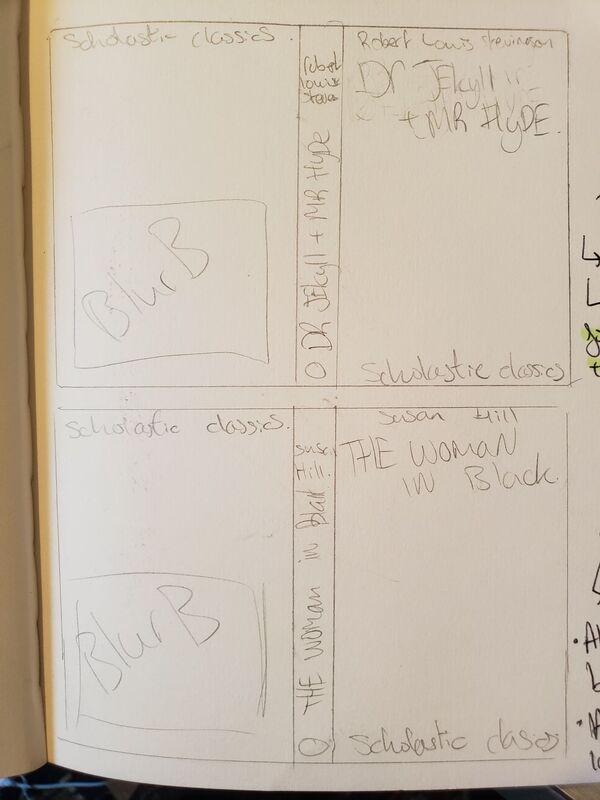 Scholastic classics.
BlurB
Robert
Louis
Steven
O DR JEkyll + MR Hyde
Robert Louis Stevinson
DR JEkyll
+ MR HyDE.
Scholastic classics
Scholastic classics.
BlurB
Susan
Hill.
THE WOMAN in Black
Susan Hill
THE WOMAN
IN Black.
Scholastic classics